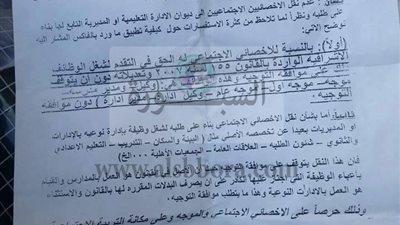 بشأن : عدم نقل الاخصائيين الاجتماعيين الى ديوان الادارة التعليمية او المديرية التابع لها بناء
على طلبه ونظراً لما تلاحظ من كثرة الاستفسارات حول كيفية تطبيق ما ورد بالفاكس المشار اليه
نوضح الاتى :
(أولاً): بالنسبة للاخصائى الاجتماعى له الحق فى التقدم لشغل الوظائف
الاشرافية الواردة بالقانون ١٥٥ وتعديلاته دون ان يتوقف
على موافقة التوجيه وهذه هى (وكيل ومدير
موجه – موجه اول – موجه عام – وكيل ادارة – مدير ادارة ) دون موافقة
التوجيه .
بشأن نقل الاخصائى الاجتماعى بناء على طلبه لشغل وظيفة بإدارة نوعيه بالإدارات
او المديريات بعيدا عن تخصصه الأصلى مثل ( البيئة والسكان – التدريب – التعليم الاعدادى
والثانوى – شئون الطلبة – العلاقات العامة – الجمعيات الاهلية .. الخ)
فان هذا النقل يتوقف على موافقة التوجيه
بأعباء الوظيفة التى اجتاز عليها الكادر على ان يصرف البدلات المقررة لها بالقانون والاستثناء
هو العمل بالادارات النوعية وهذا ما يتطلب موافقة التوجيه .
وذلك حرصاً على الاخصائى الاجتماعى والموجه وعلى مكانة التربية الاجتماعية
السبورة
www.alsbbora.info